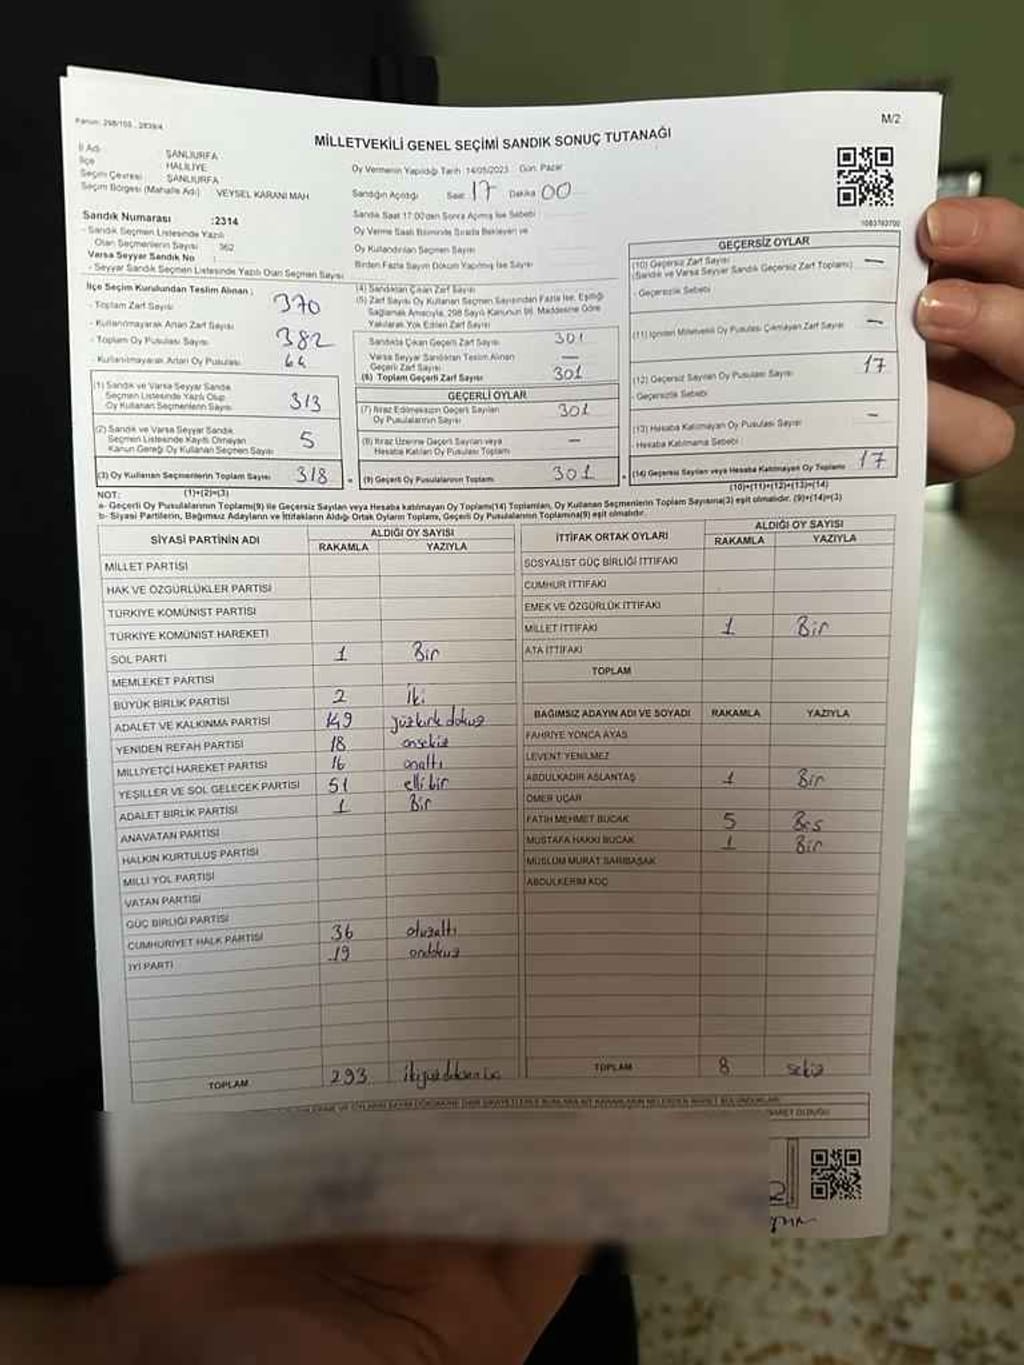 M/2
MİLLETVEKİLİ GENEL SEÇİMİ SANDIK SONUÇ TUTANAĞI
İl Adı : ŞANLIURFA
İlçe : HALİLİYE
Seçim Çevresi : ŞANLIURFA
Seçim Bölgesi (Mahalle Adı) : VEYSEL KARANİ MAH
Oy Vermenin Yapıldığı Tarih :14/05/2023 Gün: Pazar
Sandığın Açıldığı Saat 17 Dakika 00
Sandık Numarası :2314
- Sandık Seçmen Listesinde Yazılı
Olan Seçmenlerin Sayısı : 362
Varsa Seyyar Sandık No :
- Seyyar Sandık Seçmen Listesinde Yazılı Olan Seçmen Sayısı
Sandık Saat 17:00'den Sonra Açılmış İse Sebebi
Oy Verme Saati Bitiminde Sırada Bekleyen ve
Oy Kullandırılan Seçmen Sayısı
Birden Fazla Sayım Döküm Yapılmış İse Sayısı
İlçe Seçim Kurulundan Teslim Alınan :
- Toplam Zarf Sayısı 370
- Kullanılmayarak Artan Zarf Sayısı
- Toplam Oy Pusulası Sayısı 382
- Kullanılmayarak Artan Oy Pusulası 64
(1) Sandık ve Varsa Seyyar Sandık
Seçmen Listesinde Yazılı Olup
Oy Kullanan Seçmenlerin Sayısı 313
(2) Sandık ve Varsa Seyyar Sandık
Seçmen Listesinde Kayıtlı Olmayan
Kanun Gereği Oy Kullanan Seçmen Sayısı 5
(3) Oy Kullanan Seçmenlerin Toplam Sayısı 318
(1)+(2)=(3)
(4) Sandıktan Çıkan Zarf Sayısı
(5) Zarf Sayısı Oy Kullanan Seçmen Sayısından Fazla İse, Eşitliği
Sağlamak Amacıyla, 298 Sayılı Kanunun 98. Maddesine Göre
Yakılarak Yok Edilen Zarf Sayısı
Sandıkta Çıkan Geçerli Zarf Sayısı 301
Varsa Seyyar Sandıktan Teslim Alınan
Geçerli Zarf Sayısı —
(6) Toplam Geçerli Zarf Sayısı 301
GEÇERLİ OYLAR
(7) İtiraz Edilmeksizin Geçerli Sayılan
Oy Pusulalarının Sayısı 301
(8) İtiraz Üzerine Geçerli Sayılan veya
Hesaba Katılan Oy Pusulası Toplamı —
(9) Geçerli Oy Pusulalarının Toplamı 301
GEÇERSİZ OYLAR
(10) Geçersiz Zarf Sayısı —
(Sandık ve Varsa Seyyar Sandık Geçersiz Zarf Toplamı)
- Geçersizlik Sebebi
(11) İçinden Milletvekili Oy Pusulası Çıkmayan Zarf Sayısı —
(12) Geçersiz Sayılan Oy Pusulası Sayısı 17
- Geçersizlik Sebebi
(13) Hesaba Katılmayan Oy Pusulası Sayısı —
- Hesaba Katılmama Sebebi
(14) Geçersiz Sayılan veya Hesaba Katılmayan Oy Toplamı 17
(10)+(11)+(12)+(13)=(14)
NOT:
a- Geçerli Oy Pusulalarının Toplamı(9) ile Geçersiz Sayılan veya Hesaba katılmayan Oy Toplamı(14) Toplamları, Oy Kullanan Seçmenlerin Toplam Sayısına(3) eşit olmalıdır. (9)+(14)=(3)
b- Siyasi Partilerin, Bağımsız Adayların ve İttifakların Aldığı Ortak Oyların Toplamı, Geçerli Oy Pusulalarının Toplamına(9) eşit olmalıdır.
SİYASİ PARTİNİN ADI ALDIĞI OY SAYISI
RAKAMLA YAZIYLA
MİLLET PARTİSİ
HAK VE ÖZGÜRLÜKLER PARTİSİ
TÜRKİYE KOMÜNİST PARTİSİ
TÜRKİYE KOMÜNİST HAREKETİ
SOL PARTİ 1 Bir
MEMLEKET PARTİSİ
BÜYÜK BİRLİK PARTİSİ 2 İki
ADALET VE KALKINMA PARTİSİ 149 yüzkırkdokuz
YENİDEN REFAH PARTİSİ 18 onsekiz
MİLLİYETÇİ HAREKET PARTİSİ 16 onaltı
YEŞİLLER VE SOL GELECEK PARTİSİ 51 ellibir
ADALET BİRLİK PARTİSİ 1 Bir
ANAVATAN PARTİSİ
HALKIN KURTULUŞ PARTİSİ
MİLLİ YOL PARTİSİ
VATAN PARTİSİ
GÜÇ BİRLİĞİ PARTİSİ
CUMHURİYET HALK PARTİSİ 36 otuzaltı
İYİ PARTİ 19 ondokuz
TOPLAM 293
İTTİFAK ORTAK OYLARI ALDIĞI OY SAYISI
RAKAMLA YAZIYLA
SOSYALİST GÜÇ BİRLİĞİ İTTİFAKI
CUMHUR İTTİFAKI
EMEK VE ÖZGÜRLÜK İTTİFAKI
MİLLET İTTİFAKI 1 Bir
ATA İTTİFAKI
TOPLAM
BAĞIMSIZ ADAYIN ADI VE SOYADI RAKAMLA YAZIYLA
FAHRİYE YONCA AYAS
LEVENT YENİLMEZ
ABDULKADİR ASLANTAŞ 1 Bir
ÖMER UÇAR
FATİH MEHMET BUCAK 5 Beş
MUSTAFA HAKKI BUCAK 1 Bir
MÜSLÜM MURAT SARIBAŞAK
ABDULKERİM KOÇ
TOPLAM 8 sekiz